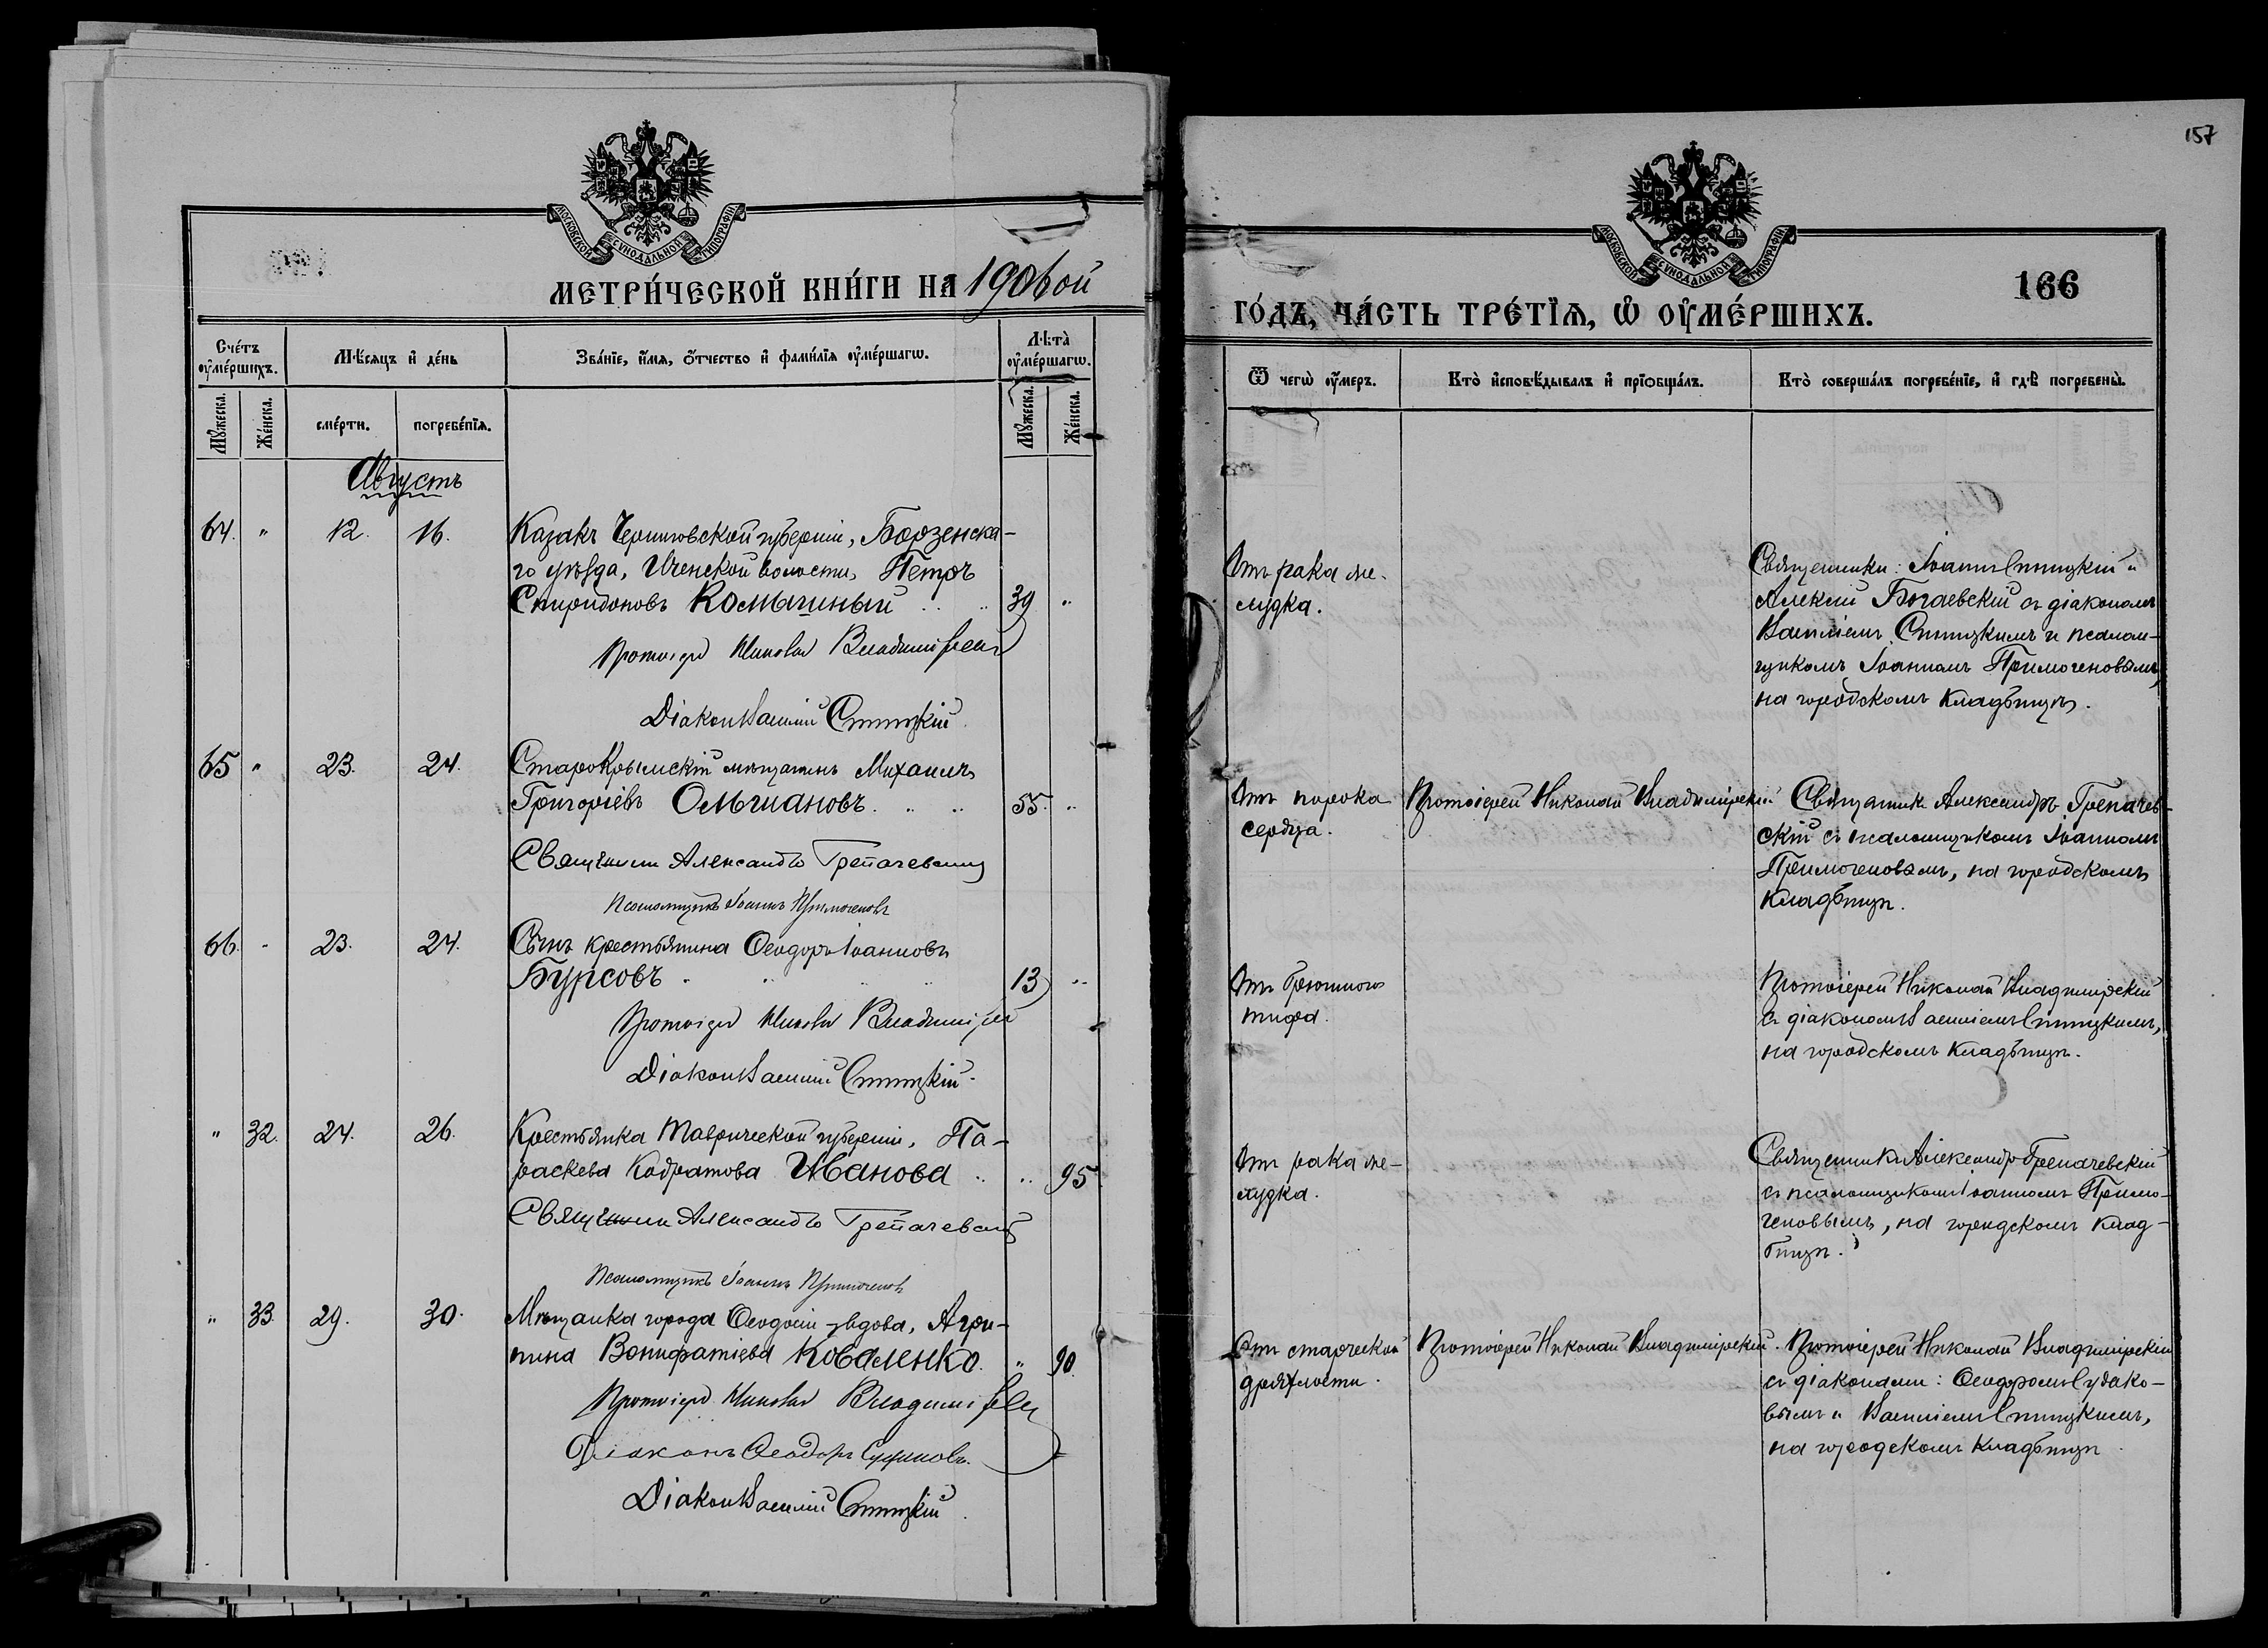 157
МОСКОВСКОЙ СУНОДАЛЬНОЙ ТИПОГРАФІИ
МЕТРИ́ЧЕСКОЙ КНИ́ГИ НА 1906ой
Сче́тъ ᲂу҆ме́ршихъ.
Мѣ́сяцъ и҆ де́нь
Зва́нїе, и҆́мя, ѻ҆́тчество и҆ фами́лїя ᲂу҆ме́ршагѡ.
Лѣта̀ ᲂу҆ме́ршагѡ.
Му́жеска.
Же́нска.
сме́рти.
погребе́нїя.
Му́жеска.
Же́нска.
Августъ
64. " 12. 16. Казакъ Черниговской губерніи, Борзенска-
го уѣзда, Иченской волости, Петръ
Спиридоновъ 39 "
Протоіерей Николай Владимірскій
Діаконъ Василій Спицкій
65 " 23. 24. Старокрымскій мѣщанинъ Михаилъ
Григоріевъ Ольчиановъ. 55. "
Священникъ Александръ Трепачевскій
Псаломщикъ Іоаннъ Примогеновъ
66. " 23. 24. Сынъ крестьянина Ѳеодоръ Іоанновъ
Бурсовъ 13 "
Протоіерей Николай Владимірскій
Діаконъ Василій Спицкій.
" 32. 24. 26. Крестьянка Таврической губерніи, Па-
раскева Кодратова Иванова 95
Священникъ Александръ Трепачевскій
Псаломщикъ Іоаннъ Примогеновъ
" 33. 29. 30. Мѣщанка города Ѳеодосіи вдова, Агри-
пина Вонифатіева Коваленко. " 90.
Протоіерей Николай Владимірскій
Діаконъ Ѳеодоръ Судаковъ.
Діаконъ Василій Спицкій.
МОСКОВСКОЙ СУНОДАЛЬНОЙ ТИПОГРАФІИ
166
ГО́ДЪ, ЧА́СТЬ ТРЕ́ТЇѦ, Ѡ҆ ОУ҆МЕ́РШИХЪ.
Ѿ чегѡ̀ ᲂу҆́меръ.
Кто̀ и҆сповѣ́дывалъ и҆ прїѡбща́лъ.
Кто̀ соверша́лъ погребе́нїе, и҆ гдѣ̀ погребены̀.
Отъ рака же-
лудка.
Священники: Іоаннъ Спицкій и
Алексій Богаевскій съ діакономъ
Василіемъ Спицкимъ и псалом-
щикомъ Іоанномъ Примогеновымъ,
на городскомъ кладбищѣ.
Отъ порока
сердца.
Протоіерей Николай Владимірскій
Священникъ Александръ Трепачев-
скій съ псаломщикомъ Іоанномъ
Примогеновымъ, на городскомъ
кладбищѣ.
Отъ брюшного
тифа.
Протоіерей Николай Владимірскій
съ діакономъ Василіемъ Спицкимъ,
на городскомъ кладбищѣ.
Отъ рака же-
лудка.
Священникъ Александръ Трепачевскій
съ псаломщикомъ Іоанномъ Примо-
геновымъ, на городскомъ клад-
бищѣ.
Отъ старческой
дряхлости.
Протоіерей Николай Владимірскій.
Протоіерей Николай Владимірскій
съ діаконами: Ѳеодоромъ Судако-
вымъ и Василіемъ Спицкимъ,
на городскомъ кладбищѣ